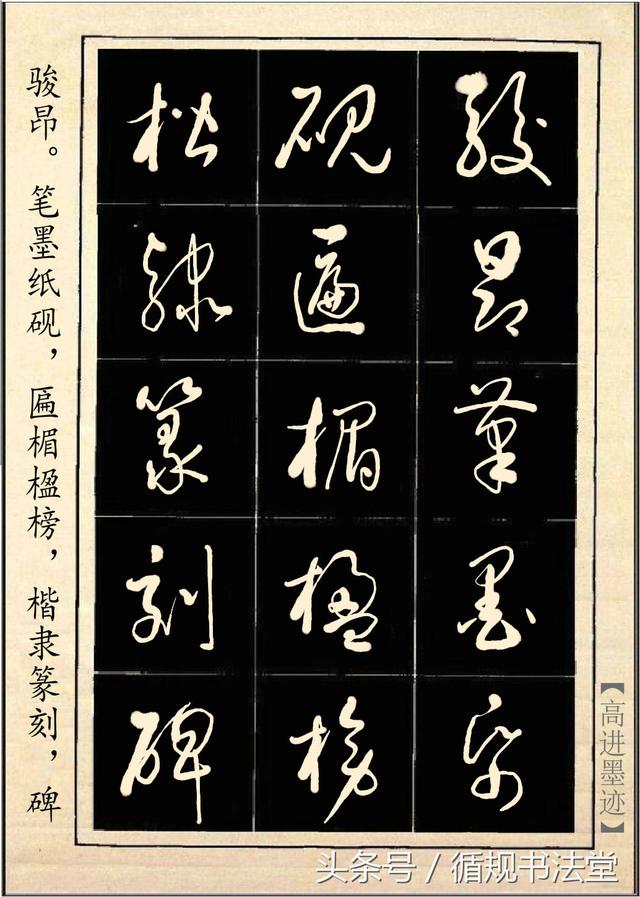 骏昂。笔墨纸砚，匾楣楹榜，楷隶篆刻，碑
駿昂筆墨紙
砚匾楣楹榜
楷隸篆刻碑
【高进墨迹】
头条号／循规书法堂